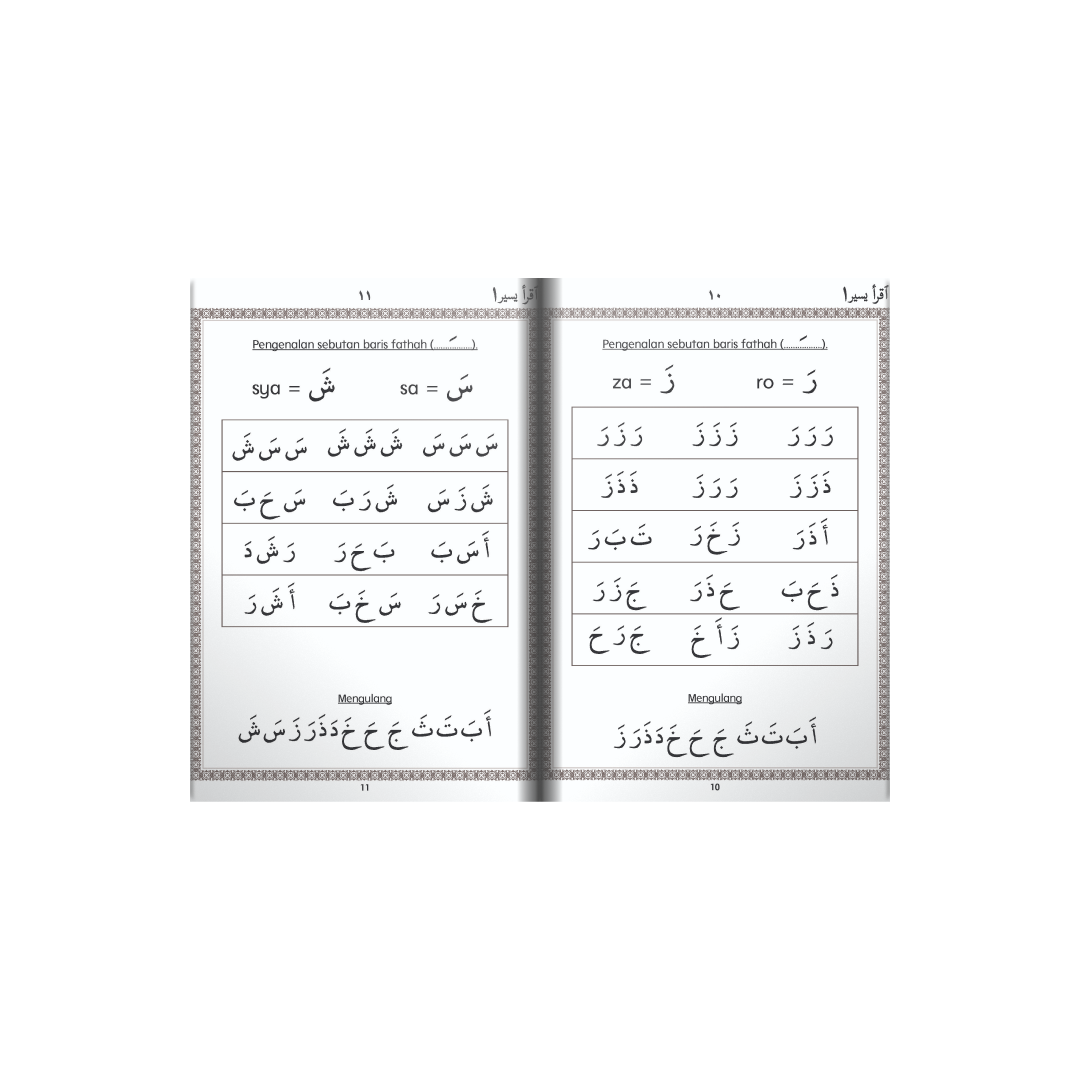 اقرأ يسيرا ١٠
Pengenalan sebutan baris fathah (......َ......).
رَ = ro زَ = za
رَ رَ رَ زَ زَ زَ رَ زَ رَ
ذَ زَ زَ رَ رَ زَ ذَ ذَ زَ
أَ ذَ رَ زَ خَ رَ تَ بَ رَ
ذَ حَ بَ حَ ذَ رَ جَ زَ رَ
رَ ذَ زَ زَ أَ خَ جَ رَ حَ
Mengulang
أَ بَ تَ ثَ جَ حَ خَ دَ ذَ رَ زَ
10
اقرأ يسيرا ١١
Pengenalan sebutan baris fathah (......َ......).
سَ = sa شَ = sya
سَ سَ سَ شَ شَ شَ سَ سَ شَ
شَ زَ سَ شَ رَ بَ سَ حَ بَ
أَ سَ بَ بَ حَ رَ رَ شَ دَ
خَ سَ رَ سَ خَ بَ أَ شَ رَ
Mengulang
أَ بَ تَ ثَ جَ حَ خَ دَ ذَ رَ زَ سَ شَ
11